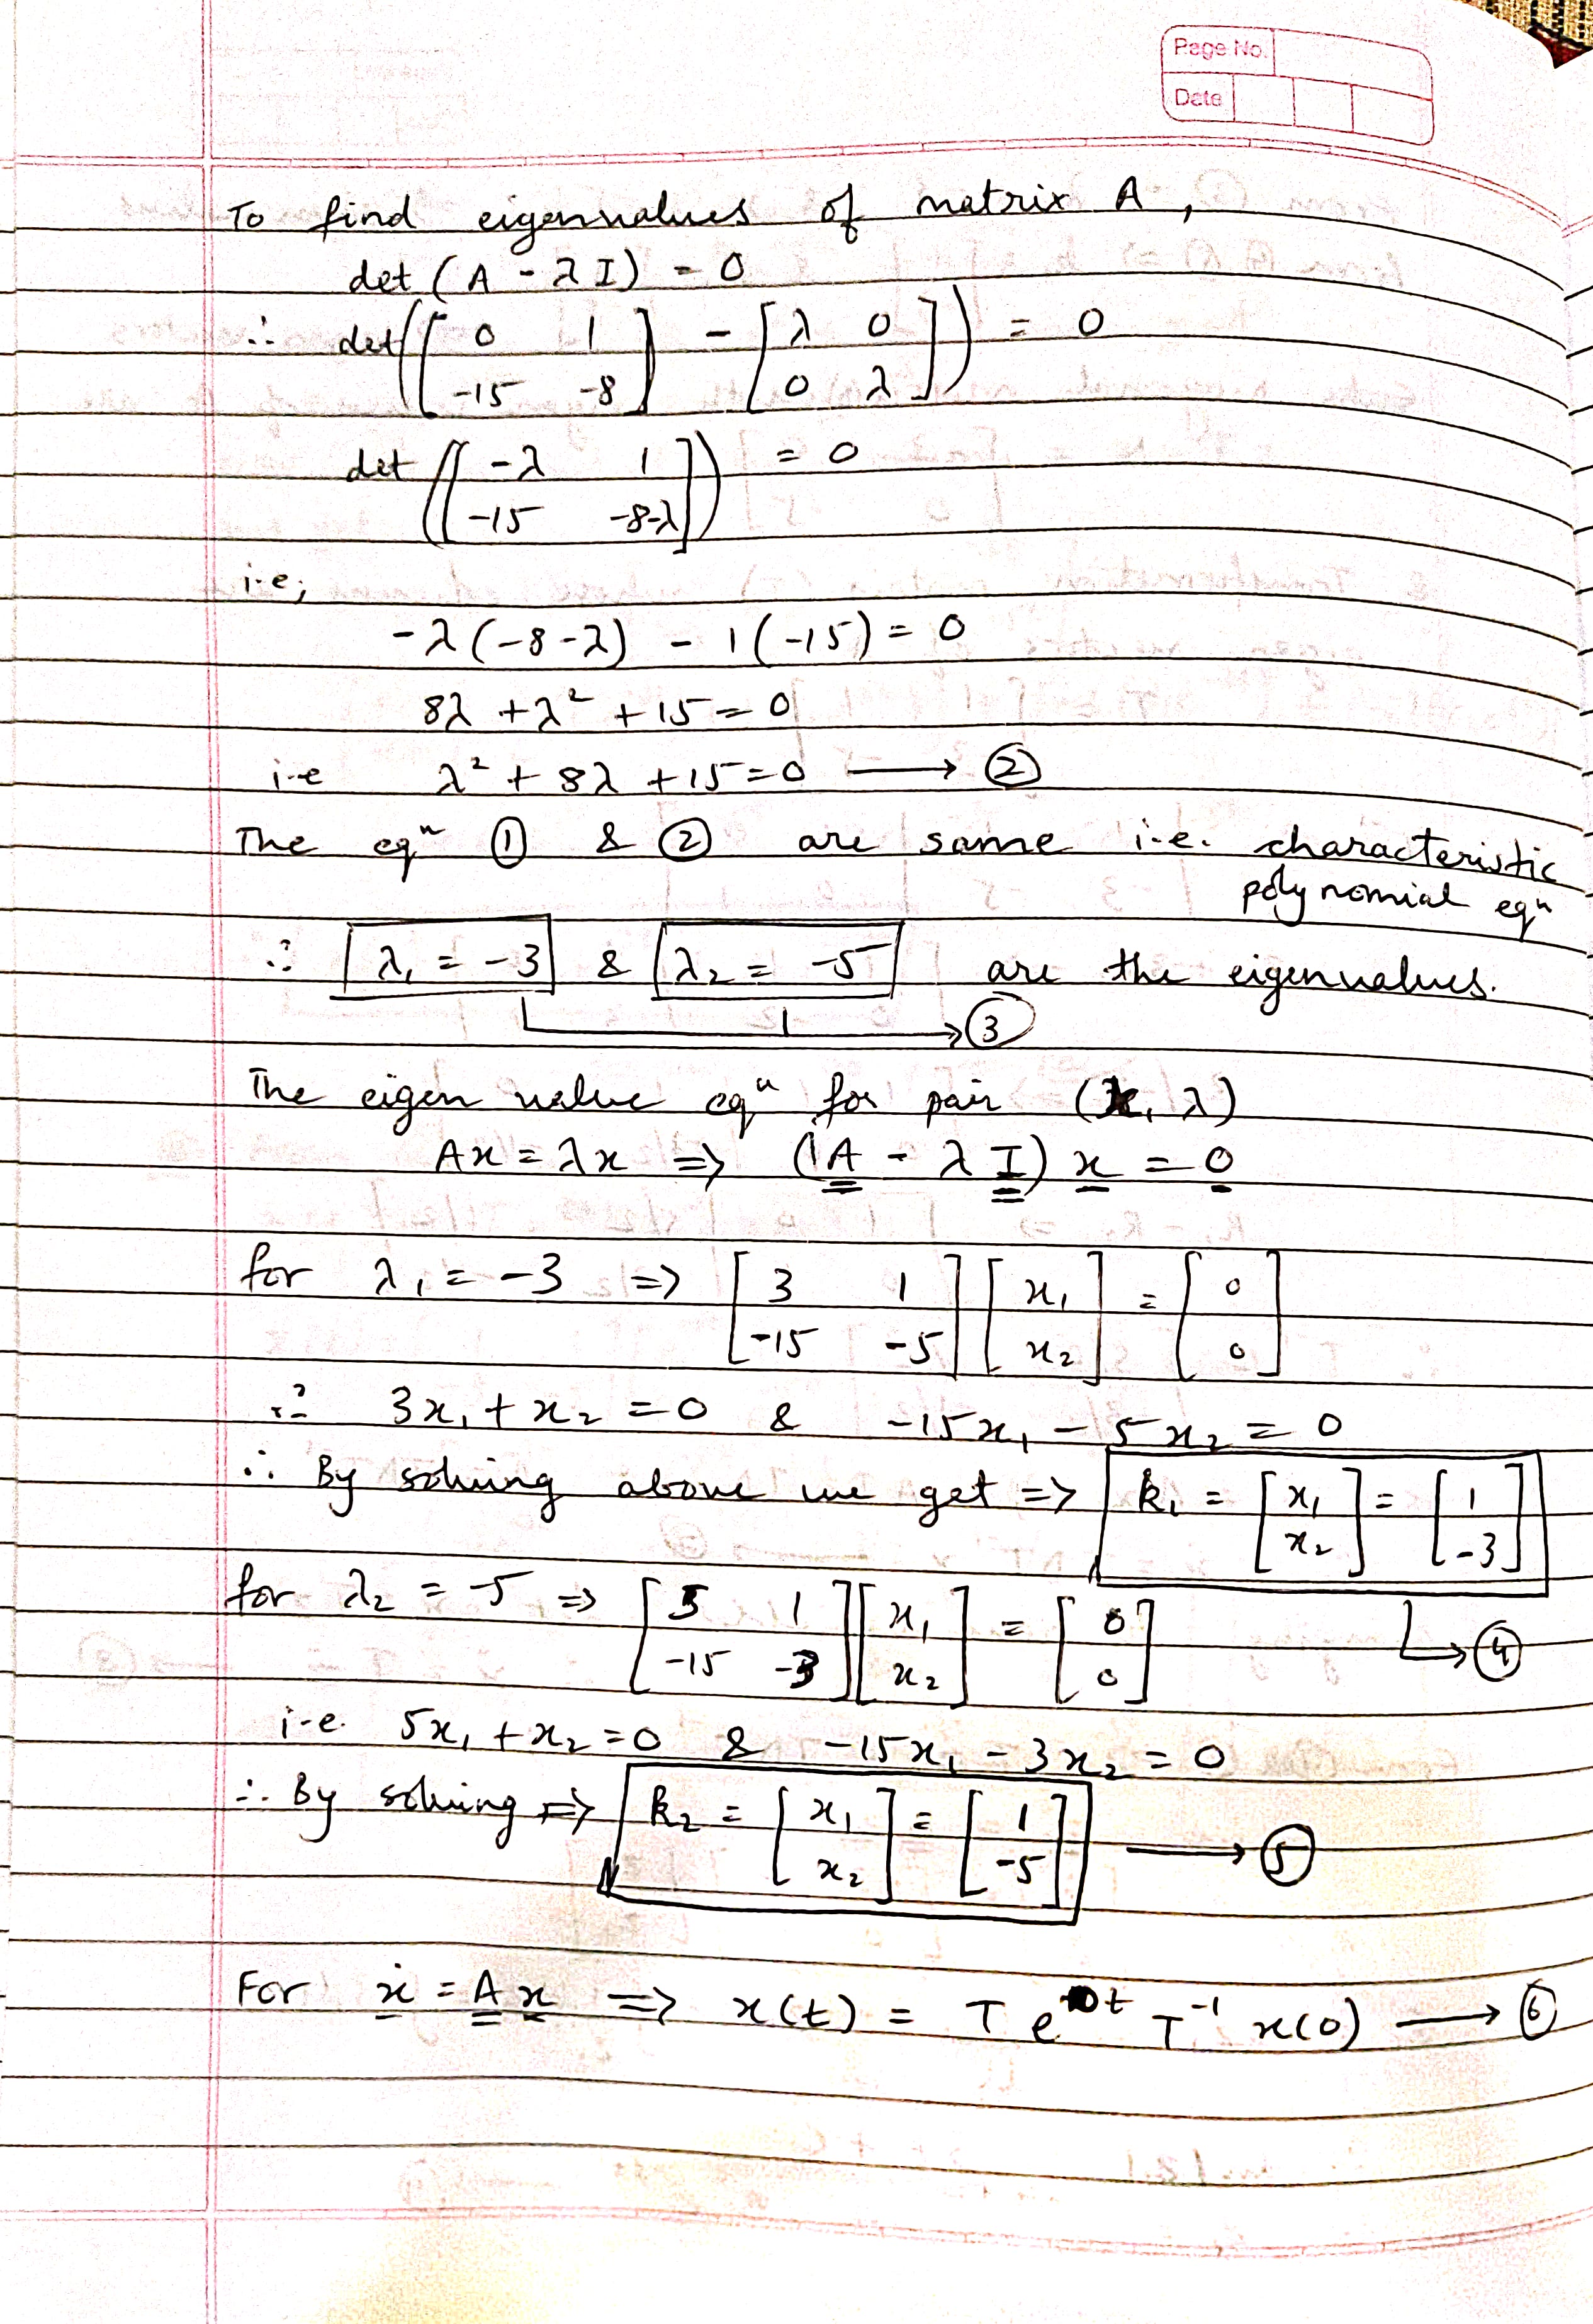 Page No.
Date
To find eigenvalues of matrix A,
det (A - λI) = 0
∴ det([0 1; -15 -8] - [λ 0; 0 λ]) = 0
det([-λ 1; -15 -8-λ]) = 0
i.e;
-λ(-8-λ) - 1(-15) = 0
8λ + λ² + 15 = 0
i.e λ² + 8λ + 15 = 0 ⟶ ②
The eqⁿ ① & ② are same i.e. characteristic
polynomial eqⁿ
∴ λ₁ = -3 & λ₂ = -5 are the eigenvalues.
→ ③
The eigen value eqⁿ for pair (x, λ)
Ax = λx ⇒ (A - λI) x = 0
for λ₁ = -3 ⇒ [3 1; -15 -5] [x₁; x₂] = [0; 0]
∴ 3x₁ + x₂ = 0 & -15x₁ - 5x₂ = 0
∴ By solving above we get ⇒ k₁ = [x₁; x₂] = [1; -3]
→ ④
for λ₂ = -5 ⇒ [5 1; -15 -3] [x₁; x₂] = [0; 0]
i.e. 5x₁ + x₂ = 0 & -15x₁ - 3x₂ = 0
∴ By solving ⇒ k₂ = [x₁; x₂] = [1; -5] ⟶ ⑤
For ẋ = A x ⇒ x(t) = T e^Dt T⁻¹ x(0) ⟶ ⑥